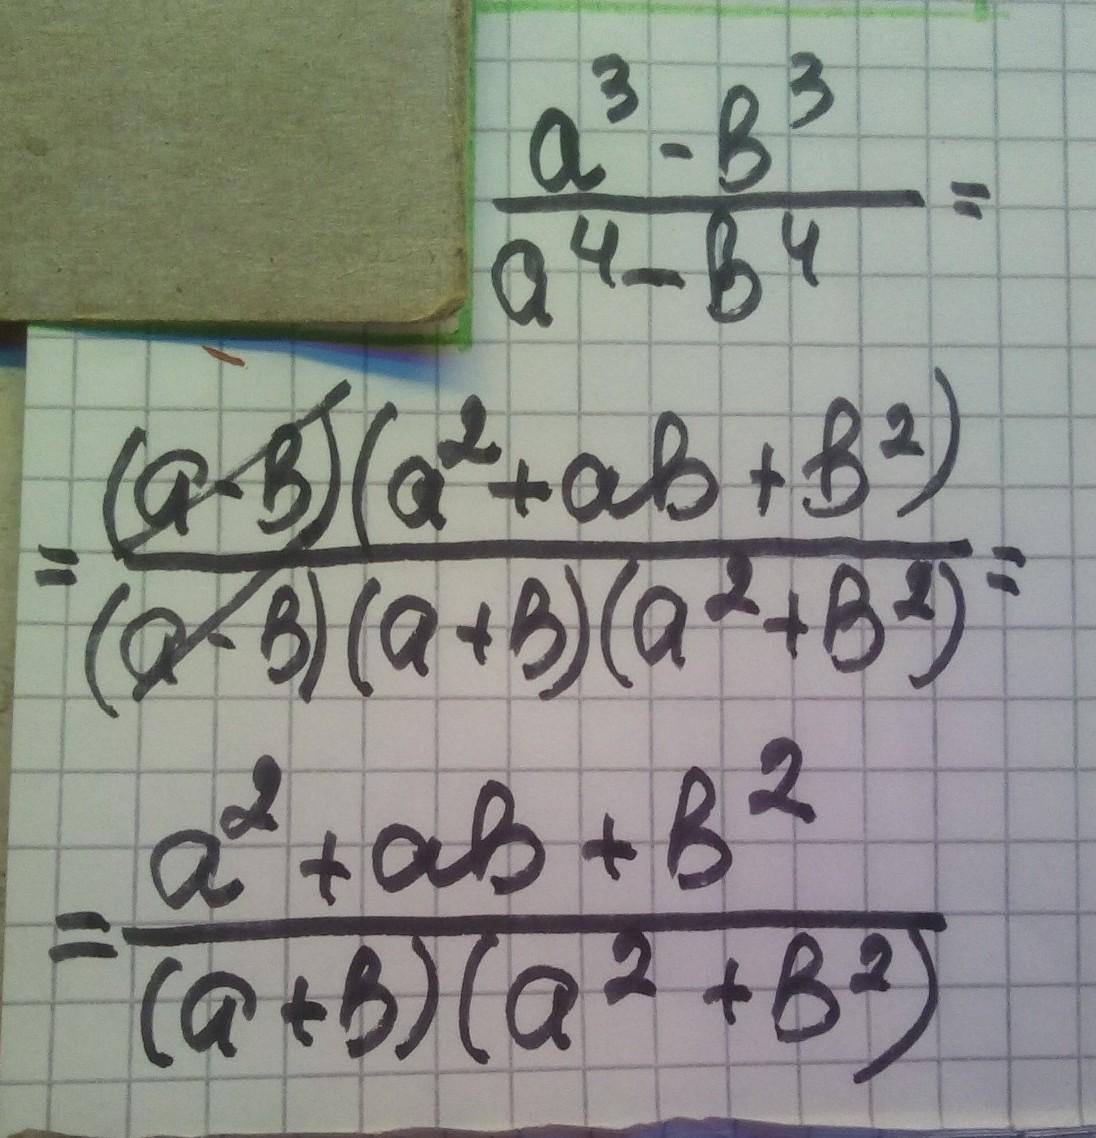 a³ - b³
a⁴ - b⁴ =
= (a-b)(a² + ab + b²)
(a-b)(a+b)(a² + b²) =
= a² + ab + b²
(a+b)(a² + b²)